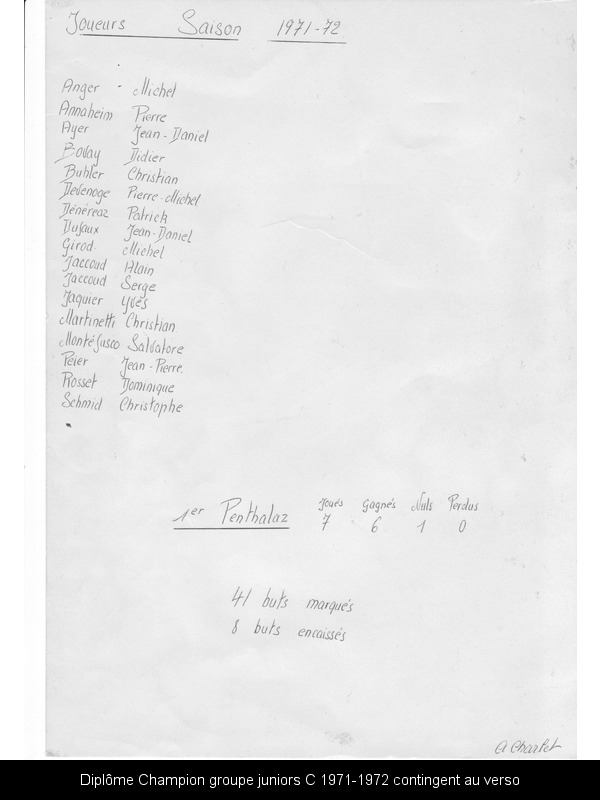 Joueurs Saison 1971-72
Anger - Michel
Annaheim Pierre
Ayer Jean-Daniel
Bovay Didier
Buhler Christian
Devenoge Pierre-Michel
Dénéréaz Patrick
Dufaux Jean-Daniel
Girod Michel
Jaccoud Alain
Jaccoud Serge
Jaquier Yves
Martinetti Christian
Montéfusco Salvatore
Peier Jean-Pierre
Rosset Dominique
Schmid Christophe
Joués Gagnés Nuls Perdus
1er Penthalaz 7 6 1 0
41 buts marqués
8 buts encaissés
Diplôme Champion groupe juniors C 1971-1972 contingent au verso